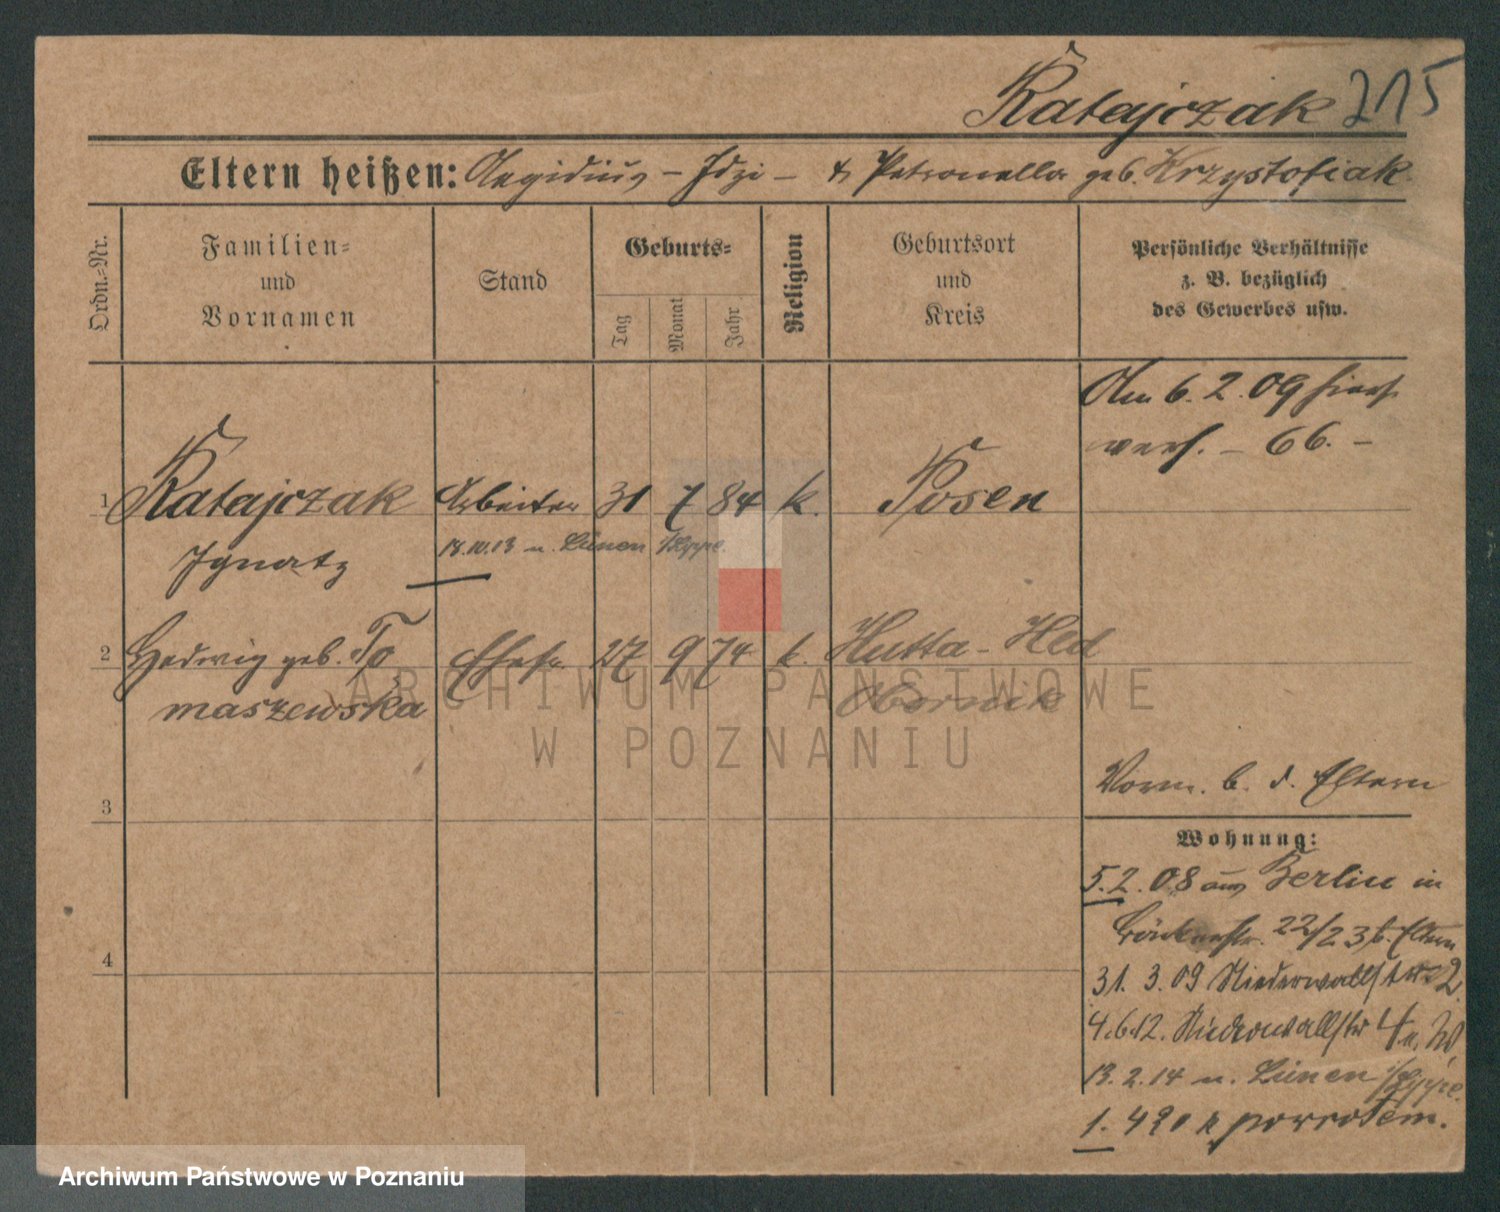 Ratajczak 215
Eltern heißen: Aegidius – Idzi – & Petronella geb. Krzystofiak
Ordn.-Nr.
Familien-
und
Vornamen
Stand
Geburts-
Tag
Monat
Jahr
Religion
Geburtsort
und
Kreis
Persönliche Verhältnisse
z. B. bezüglich
des Gewerbes usw.
Am 6. 2. 09 hier
– 66. –
1 Ratajczak Arbeiter 31 7 84 k. Posen
Ignatz
18.10.13 n. Lünen
2 Hedwig geb. To Ehefr. 27 9 74 k. Hutta-Hed
maszewska Obornik
ARCHIWUM PAŃSTWOWE
W POZNANIU
Vorm. b. d. Eltern
3
Wohnung:
5.2.08 aus Berlin in
22/23 b. Eltern
4
31. 3. 09 Niederwallstr. 2
4.6.12. Niederwallstr 4
13. 2. 14 n. Lünen
1.
Archiwum Państwowe w Poznaniu